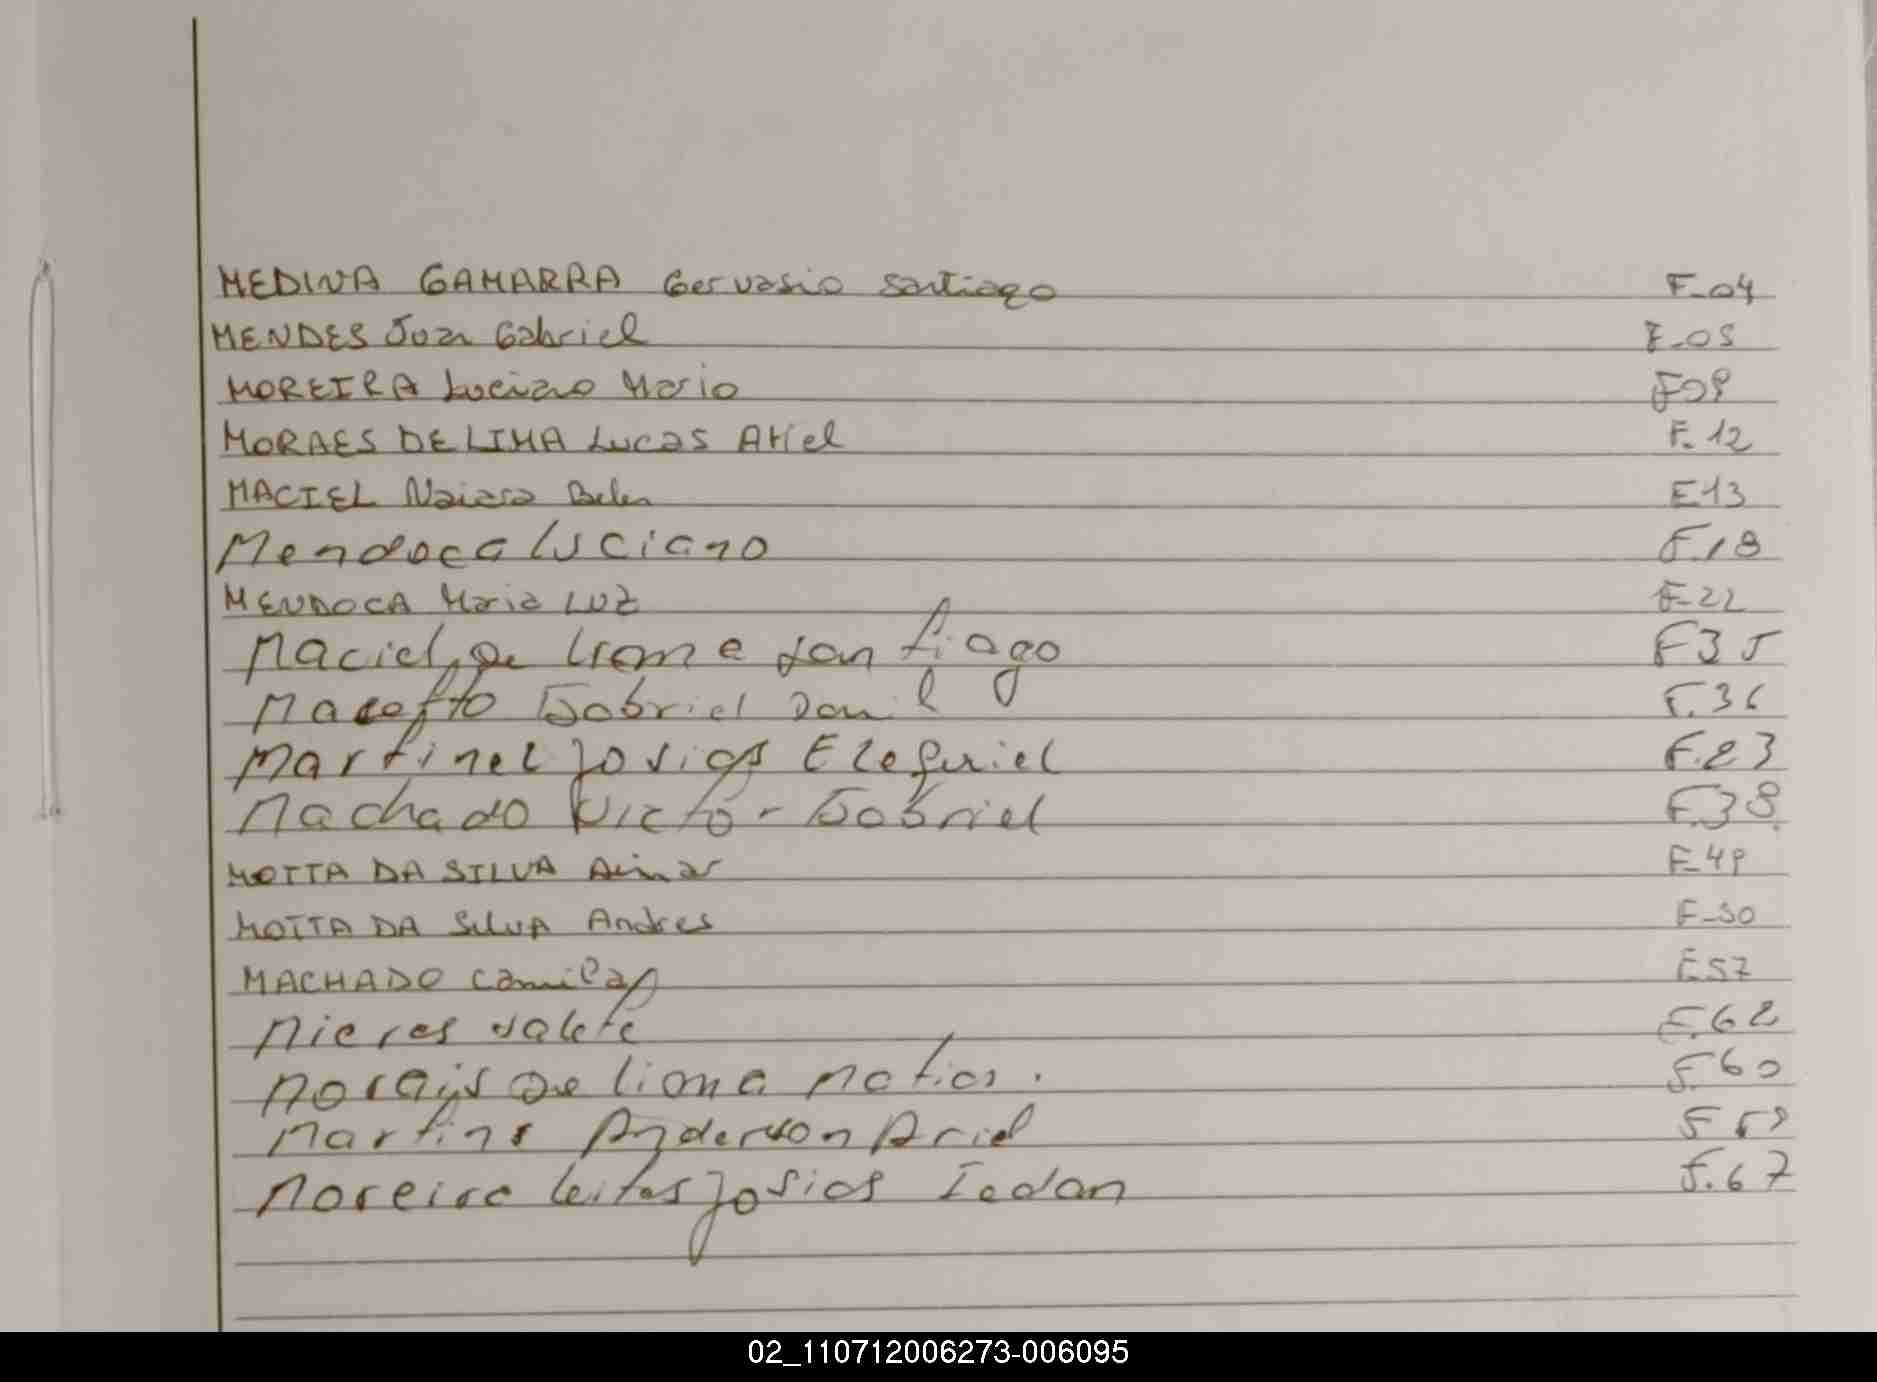 MEDINA GAMARRA Gervasio Santiago F-04
MENDES Juan Gabriel F-05
MOREIRA Luciano Mario F09
MORAES DE LIMA Lucas Ariel F-12
MACIEL Naiara Belen F13
Mendoca Luciano F.18
MENDOCA Maria LUZ F-22
Maciel de lima santiago F35
Gabriel F.36
Ezequiel F.23
Machado Victor Gabriel F.38
MOTTA DA SILVA F-49
MOTTA DA SILVA Andres F-50
MACHADO Camila F57
Nieres F.62
de lima matias. F.60
Martins Anderson Ariel F
Moreira leites josias F.67
02_110712006273-006095